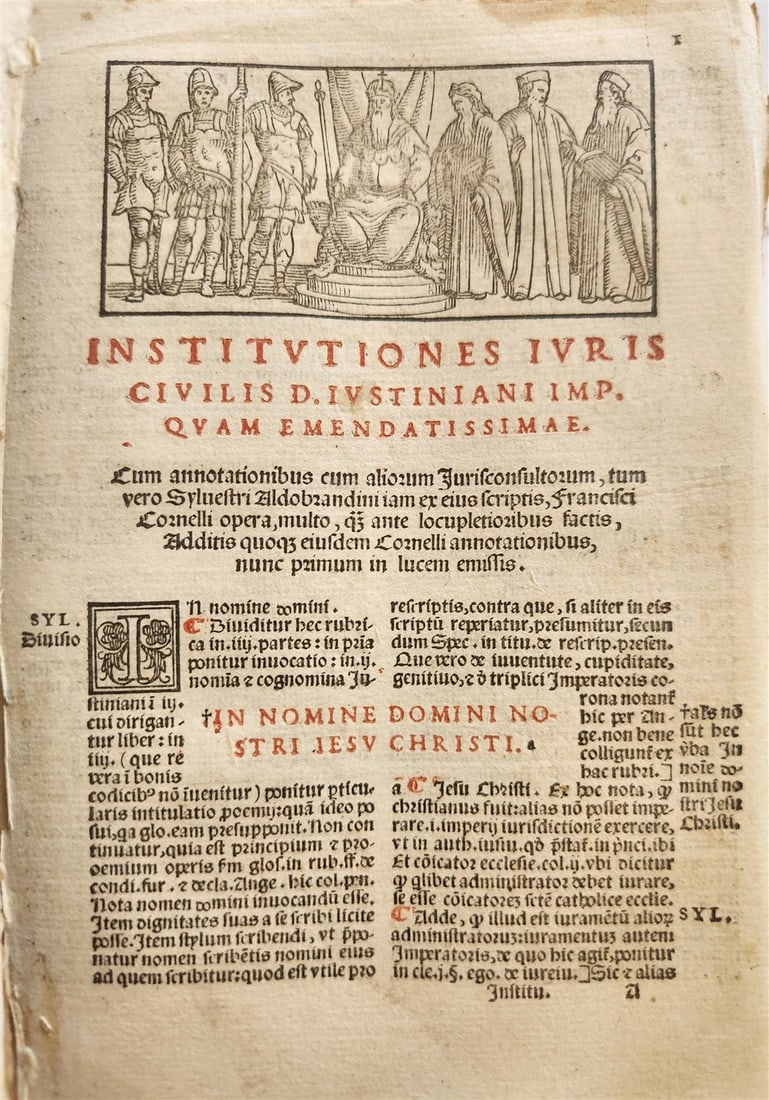 1
INSTITVTIONES IVRIS
CIVILIS D. IVSTINIANI IMP.
QVAM EMENDATISSIMAE.
Cum annotationibus cum aliorum Jurisconsultorum, tum
vero Sylvestri Aldobrandini iam ex eius scriptis, Francisci
Cornelli opera, multo, qȝ̃ ante locupletioribus factis,
Additis quoqꝫ eiusdem Cornelli annotationibus,
nunc primum in lucem emissis.
SYL.
Diuisio
IN nomine domini.
Diuiditur hec rubri-
ca in .iiij. partes: in prīa
ponitur inuocatio: in .ij.
nomīa ⁊ cognomina Ju-
stiniani ī iij.
cui dirigan-
tur liber: in
iiij. (que re
vera ī bonis
codicibꝰ nō īuenitur) ponitur pticu-
laris intitulatio ꝓoemij: quā ideo po
sui, qa glo. eam presupponit. Non con
tinuatur, quia est principium ⁊ pro-
oemium operis fm glos. in rub. ff. de
condi. fur. ⁊ decla. Ange. hic col. pen.
Nota nomen domini inuocandū esse.
Item dignitates suas a se scribi licite
posse. Item stylum scribendi, vt p̄po-
natur nomen scribētis nomini eius
ad quem scribitur: quod est vtile pro
†IN NOMINE DOMINI NO-
STRI JESV CHRISTI.
rescriptis, contra que, si aliter in eis
scriptū reperiatur, presumitur, secun
dum Spec. in titu. de rescrip. presen.
Que vero de iuuentute, cupiditate,
genitiuo, ⁊ d̄ triplici Imperatoris co-
rona notant̄
hic per An-
ge. non bene
colligunt̄ ex
hac rubri.]
a Jesu Christi. Ex hoc nota, ꝙ
christianus fuit: alias nō posset impe-
rare .i. imperij iurisdictionē exercere,
vt in auth. iusiu. qd̄ p̄stat̄. in p̄nci. ibi
Et cōicator ecclesie. col. ij. vbi dicitur
ꝙ qlibet administrator debet iurare,
se esse cōicatorē sctē catholice ecclie.
Adde, ꝙ illud est iuramētū alioꝝ
administratorum: iuramentum autem
Imperatoris, de quo hic agit̄, ponitur
in cle. j. §. ego. de iureiu.] Sic ⁊ alias
†als nō
sūt hec
v̄ba In
noīe do-
mini no
stri Jesu
Christi.
SYL.
Institu. A